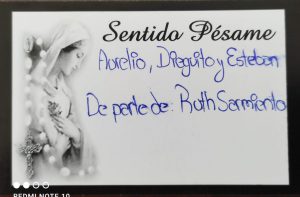 Sentido Pésame
Aurelio, Dieguito y Esteban
De parte de: Ruth Sarmiento
REDMI NOTE 10